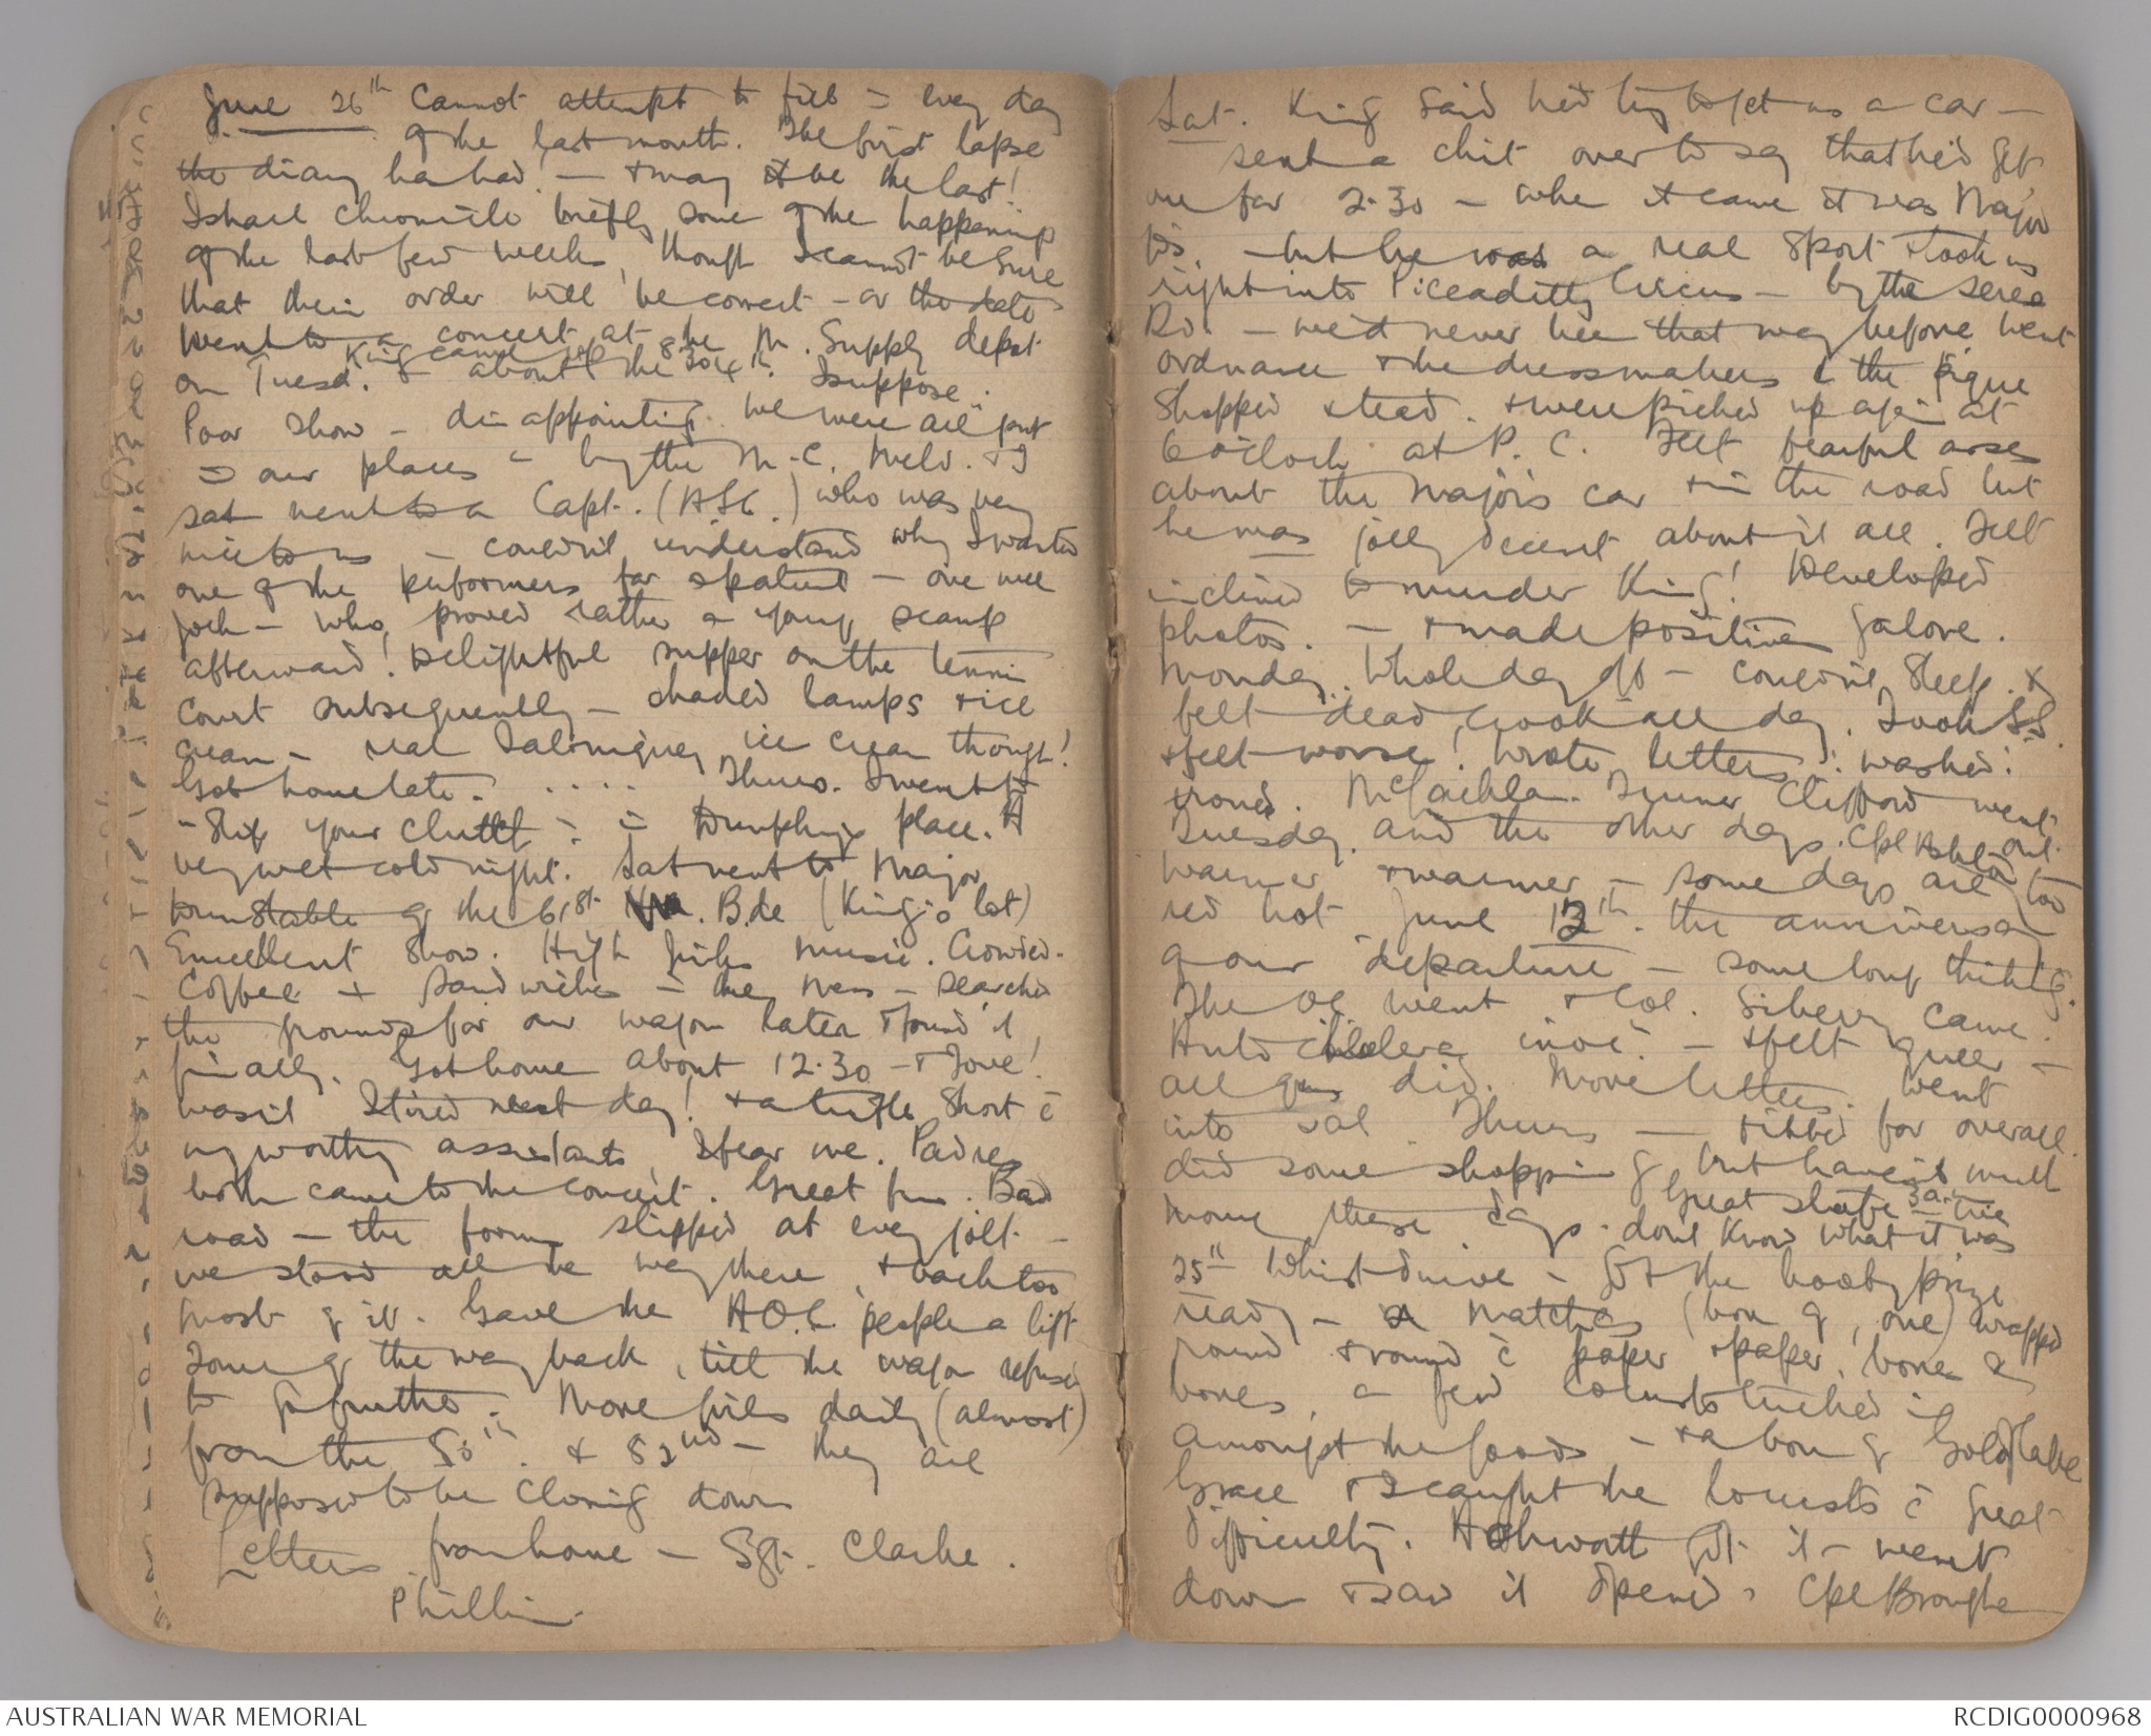 June 26th Cannot attempt to fill in every day
of the last month. The first lapse
the diary has had! - & may it be the last!
I shall chronicle briefly some of the happenings
of the last few weeks, though I cannot be sure
that their order will be correct - or the dates
Went to a concert at the M. Supply depot
King came up 8.30
on Tuesd. about the 4th I suppose.
Poor show - disappointing. We were all "put
in our places" by the M.C. Melv. & I
sat next to a Capt. (ASC.) who was very
nice to us - couldn't understand why I wanted
one of the performers for a patient - one wee
Jock - who proved rather a young scamp
afterward! Delightful supper on the tennis
court subsequently - shaded lamps & ice
cream - real Salonique ice cream though!
Got home late. ..... Thurs. I went to
"Slip your Clutch" in place. A
very wet cold night. Sat went to Major
Dunstable of the 61st Bde (King's lot)
Excellent show. High jinks music. Crowded.
Coffee & sandwiches in the mess - searched
the grounds for our wagon later & found it
finally. Got home about 12.30 - & Jove!
wasn't I tired next day! & a trifle short c
my worthy assistants, I fear me. Padres
both came to the concert. Great fun. Bad
road - the forms slipped at every jolt -
we stood all the way there, & back too
most of it. Gave the A.O.C. people a lift
some of the way back, till the wagon refused
to go further. More girls daily (almost)
from the 50th & 52nd - they are
supposed to be closing down
Letters from home - Sgt. Clarke.
Phillis.
Sat. King said he'd try to get us a car -
sent a chit over to say that he'd get
one for 2.30 - when it came it was Major
D's. - but he was a real sport & took us
right into Piccadilly Circus - by the Seres
Rd. - we'd never been that way before. Went
ordnance & the dressmakers c the pique
Shopped & tead. & were picked up again at
6 o'clock at P. C. Felt fearful asses
about the Major's car & in the road but
he was jolly decent about it all. Felt
inclined to murder King! Developed
photos. - & made positives galore.
Monday. Whole day off - couldn't sleep &
felt dead crook all day. Took S.S.
& felt worse! Wrote letters: washed:
ironed. McLachlan. Turner Clifford went
Tuesday. and the other days. Cpl Ashead out.
warmer & warmer - some days are too
red hot. June 12th. the anniversary
of our departure - some long thinking.
The OC. went & Col. Sibery came.
Anti cholera inoc. - & felt queer -
all of us did. More letters. Went
into Sal. Thurs - & fitted for overall.
did some shopping, but haven't much
money these days. Great shafe 3 a.m.
don't know what it was
25th Whist drive - got the booby prize
ready - matches (box of, one) wrapped
round & round c paper & paper, boxes &
boxes, a few locusts tucked in
amongst the foods - & a box of Gold flake
Grace & I caught the locusts c great
difficulty. Ashworth got it - went
down & saw it opened. Cpl Broughe
AUSTRALIAN WAR MEMORIAL
RCDIG0000968